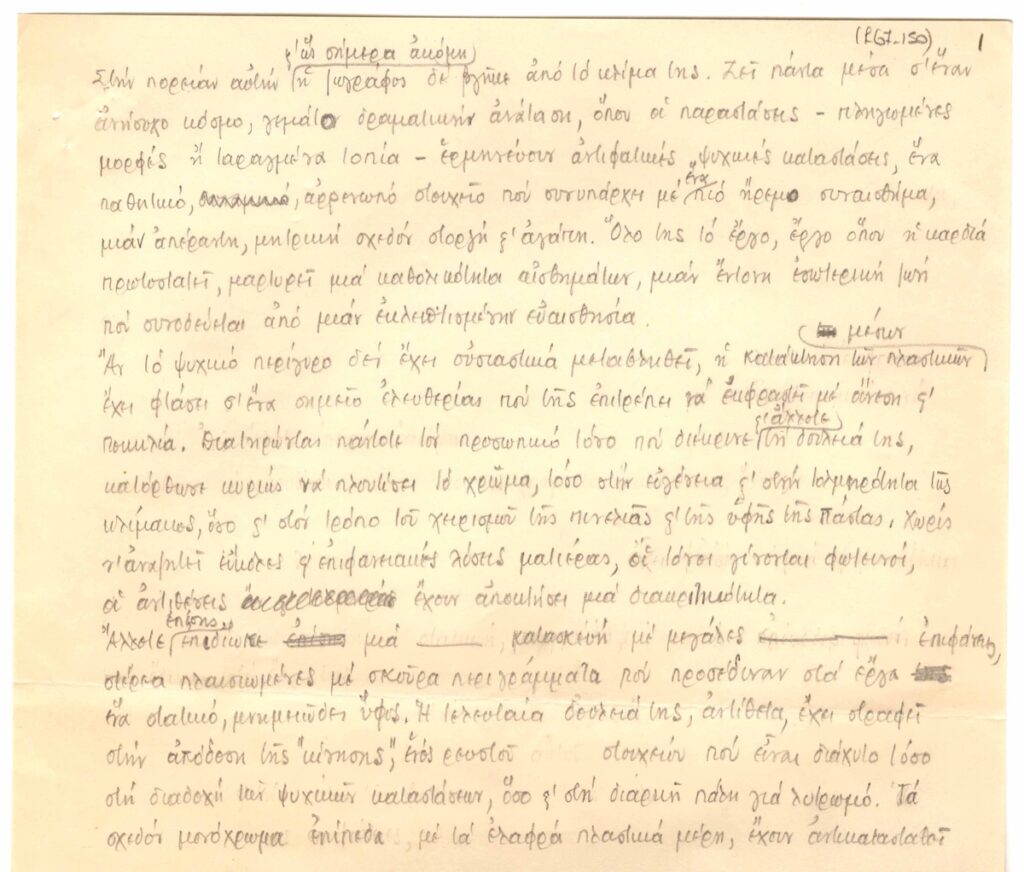 (267-150) 1
ϛ' ὥς σήμερα ἀκόμη
Στήν πορείαν αὐτήν ἡ ζωγράφος δέ βγῆκε ἀπό τό κλίμα της. Ζεῖ πάντα μέσα σ' ἕναν
ἀνήσυχο κόσμο, γεμάτο δραματικήν ἀνάταση, ὅπου οἱ παραστάσεις - πληγωμένες
μορφές ἤ ταραγμένα τοπία - ἑρμηνεύουν ἀντιφατικές ψυχικές καταστάσεις, ἕνα
ἕνα
παθητικό, ἀρρενωπό στοιχεῖο πού συνυπάρχει μέ πιό ἤρεμο συναίσθημα,
μιάν ἀπέραντη, μητρική σχεδόν στοργή ϛ' ἀγάπη. Ὅλο της τό ἔργο, ἔργο ὅπου ἡ καρδιά
πρωτοστατεῖ, μαρτυρεῖ μιά καθολικότητα αἰσθημάτων, μιάν ἔντονη ἐσωτερική ζωή
πού συνοδεύεται ἀπό μιάν ἐκλεπτισμένην εὐαισθησία.
μέσων
Ἄν τό ψυχικό περίγυρο δέν ἔχει οὐσιαστικά μεταβληθεῖ, ἡ κατάκτηση τῶν πλαστικῶν
ἔχει φτάσει σ' ἕνα σημεῖο ἐλευθερίας πού τῆς ἐπιτρέπει νά ἐκφραστεῖ μέ ἄνεση ϛ'
ϛ' ἄλλοτε
ποικιλία. Διατηρώντας πάντοτε τόν προσωπικό τόνο πού διέκρινε τή δουλειά της,
κατόρθωσε κυρίως νά πλουτίσει τό χρῶμα, τόσο στήν εὐγένεια ϛ' στήν λαμπρότητα τῆς
κλίμακος, ὅσο ϛ' στόν τρόπο τοῦ χειρισμοῦ τῆς πινελιᾶς ϛ' τῆς ὑφῆς τῆς πάστας. Χωρίς
ν' ἀναζητεῖ εὔκολες ϛ' ἐπιφανειακές λύσεις ματιέρας, οἱ τόνοι γίνονται φωτεινοί,
οἱ ἀντιθέσεις ἔχουν ἀποκτήσει μιά διακριτικότητα.
ἐπίσης
Ἄλλοτε ἐπεδίωκε μιά κατασκευή μέ μεγάλες ἐπιφάνειες,
στέρεα πλαισιωμένες μέ σκοῦρα περιγράμματα πού προσέδιναν στά ἔργα
ἕνα στατικό, μνημειῶδες ὕφος. Ἡ τελευταία δουλειά της, ἀντίθετα, ἔχει στραφεῖ
στήν ἀπόδοση τῆς "κίνησης", ἑνός ρευστοῦ στοιχείου πού εἶναι διάχυτο τόσο
στή διαδοχή τῶν ψυχικῶν καταστάσεων, ὅσο ϛ' στή διαρκῆ πάλη γιά λυτρωμό. Τά
σχεδόν μονόχρωμα ἐπίπεδα, μέ τά ἐλαφρά πλαστικά μέρη, ἔχουν ἀντικατασταθεῖ